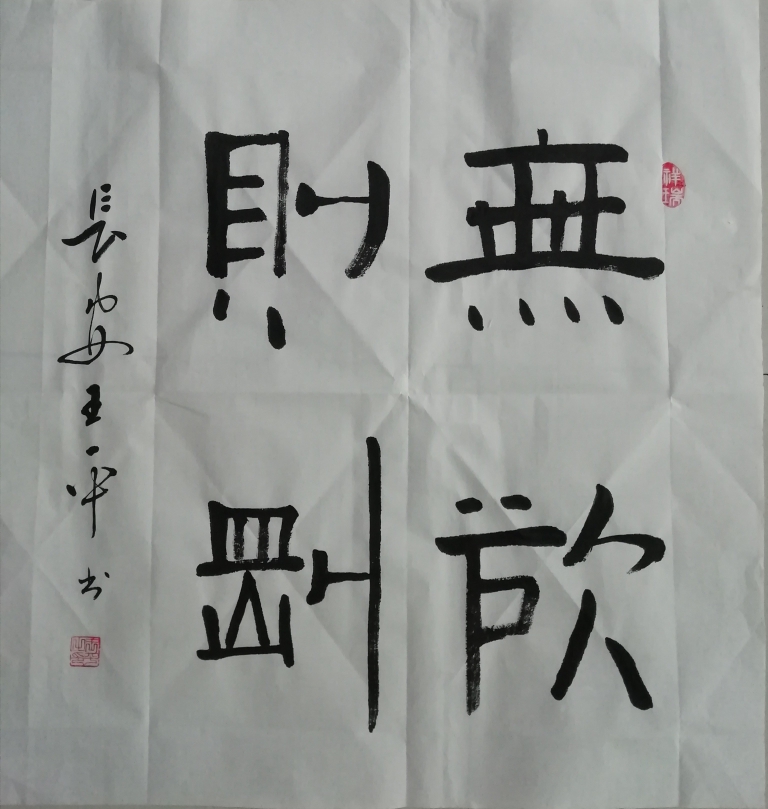 無欲
則剛
長安王一平书